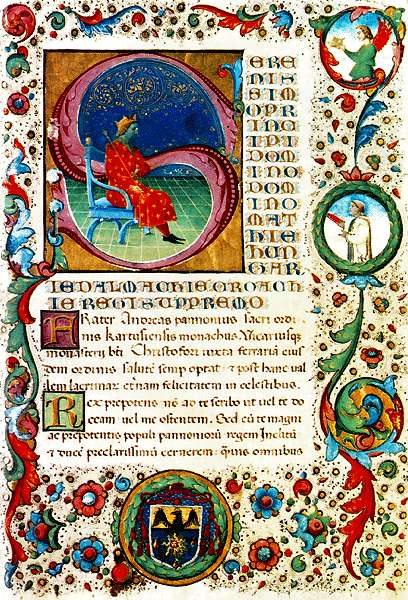 ERE
NIS
SIM
OPR
INC
IPI
DOM
INO
DOM
INO
MAT
HIE
HUN
GAR
IE DALMACHIE CROACH
IE REGI SUPPREMO
FRater Andreas pannonius sacri ordi
nis kartusiensis monachus Vicariusque
monasterii bti Christofori iuxta ferraria eius
dem ordinis salute semp optat & post hanc val
lem lacrimar eternam felicitatem in celestibus.
REx prepotens no ao te scribo ut vel te do
ceam vel me ostentem. Sed cu te magni
ac prepotentis populi pannoniorum regem Inclitu
& Duce preclarissimu cernerem: quius omnibus